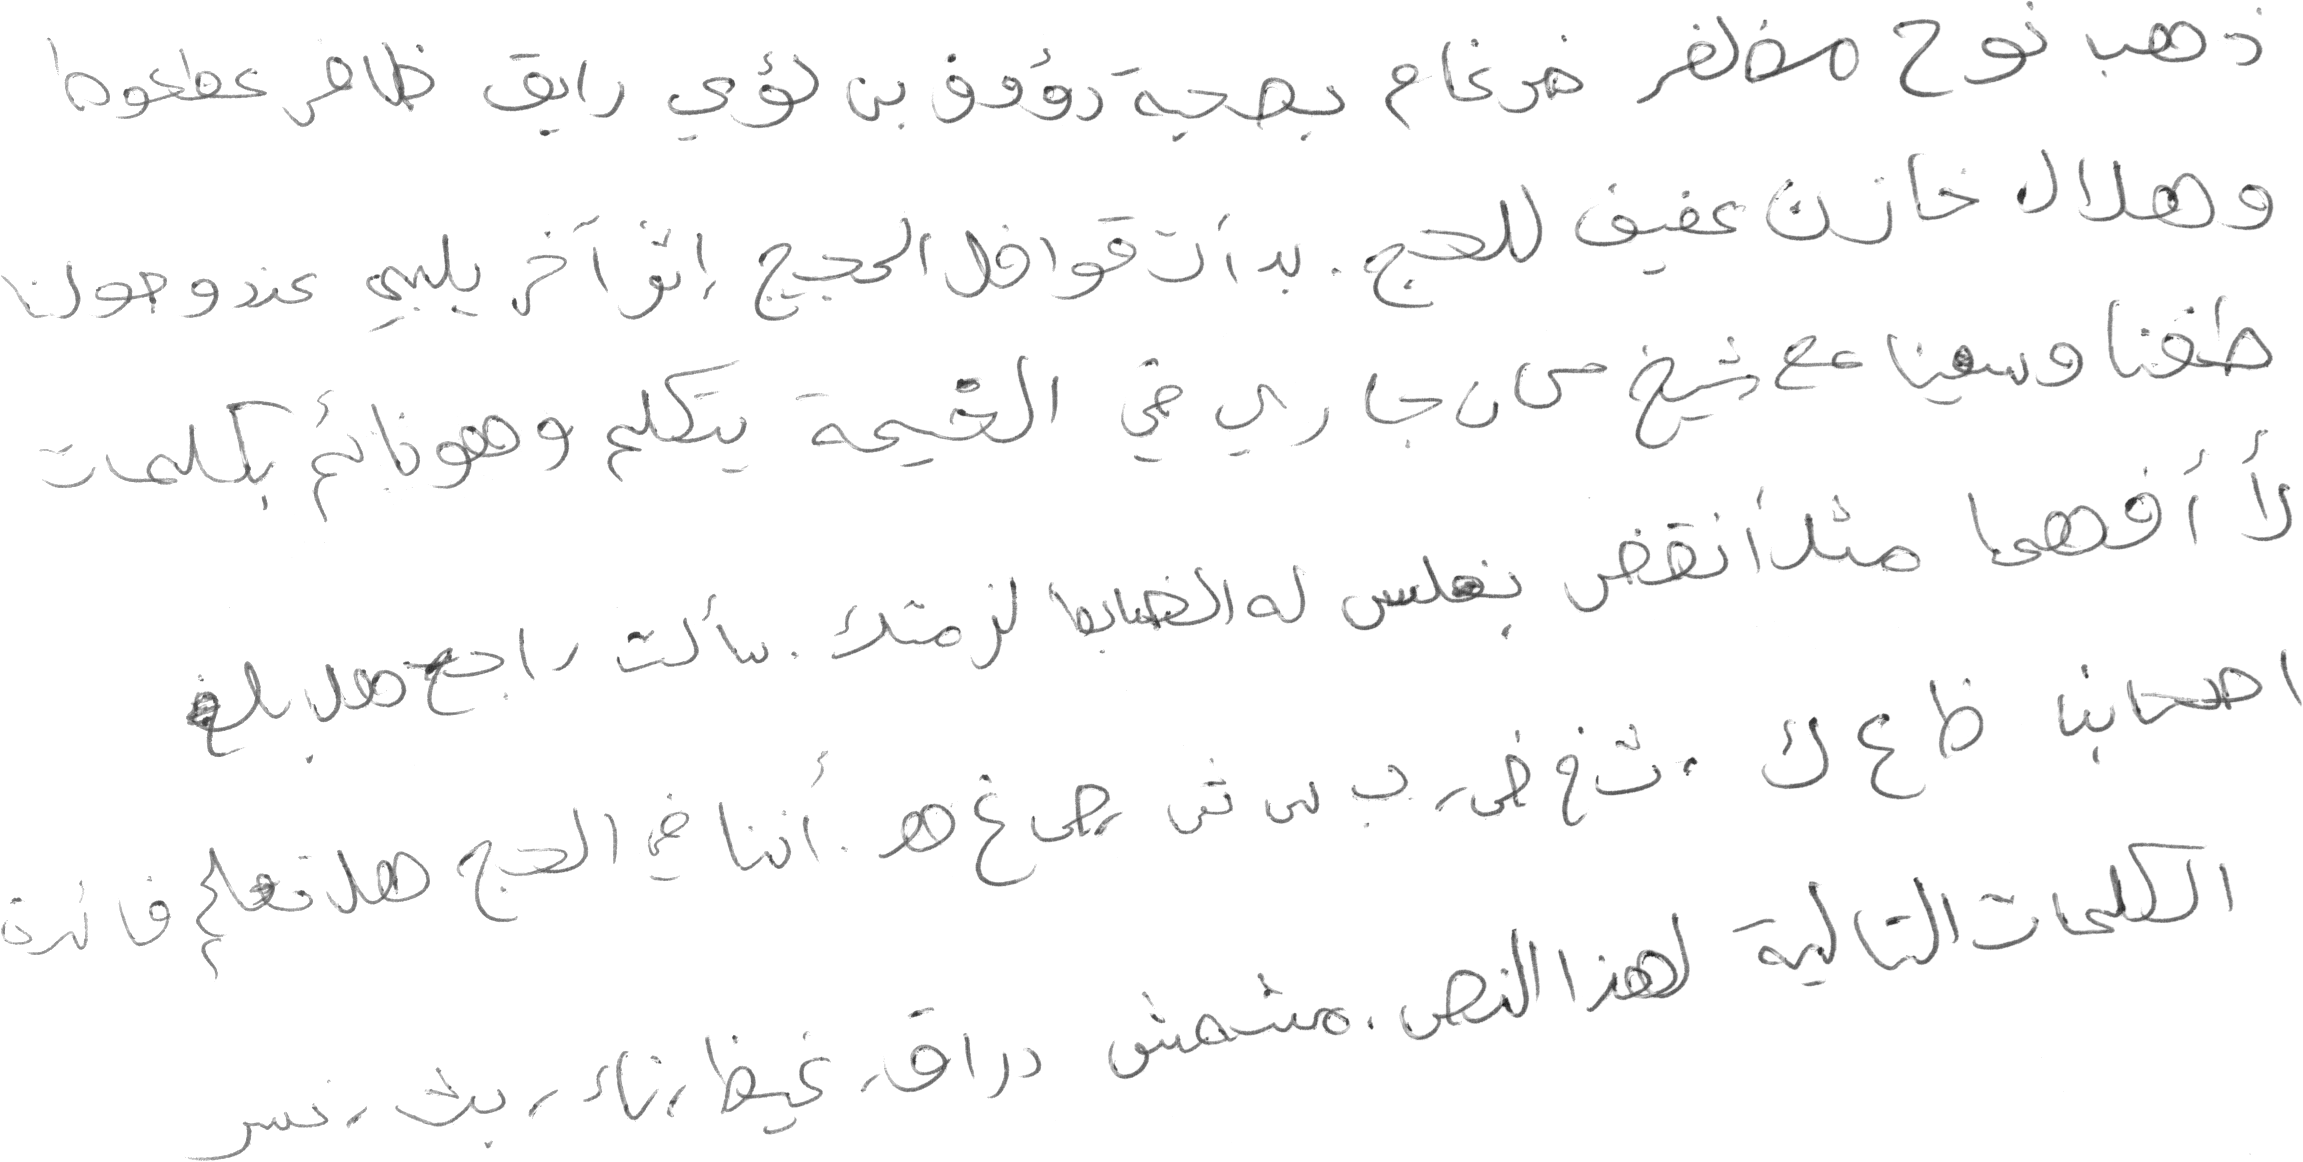 ذهب نوح مظفر ضرغام بصحبة رؤوف بن لؤي رايق ظافر عطعوط
وهلال خازن عفيف للحج. بدأت قوافل الحجيج إثر آخر يلبي عند وصولنا
طفنا وسعينا مع شيخ كان جاري في الخيمة يتكلم وهو نائم بكلمات
لا أفهما مثل أنقض بغلس له الضابط لزمتك. سألت راجح هل بلغ
اصحابنا ظ ع ك . ث خ ض، ب س ش، ص غ هـ. أننا في الحج هل تعلم فائدة
الكلمات التالية لهذا النص. مشمش دراق، غيظ، ناء، بث، نسر